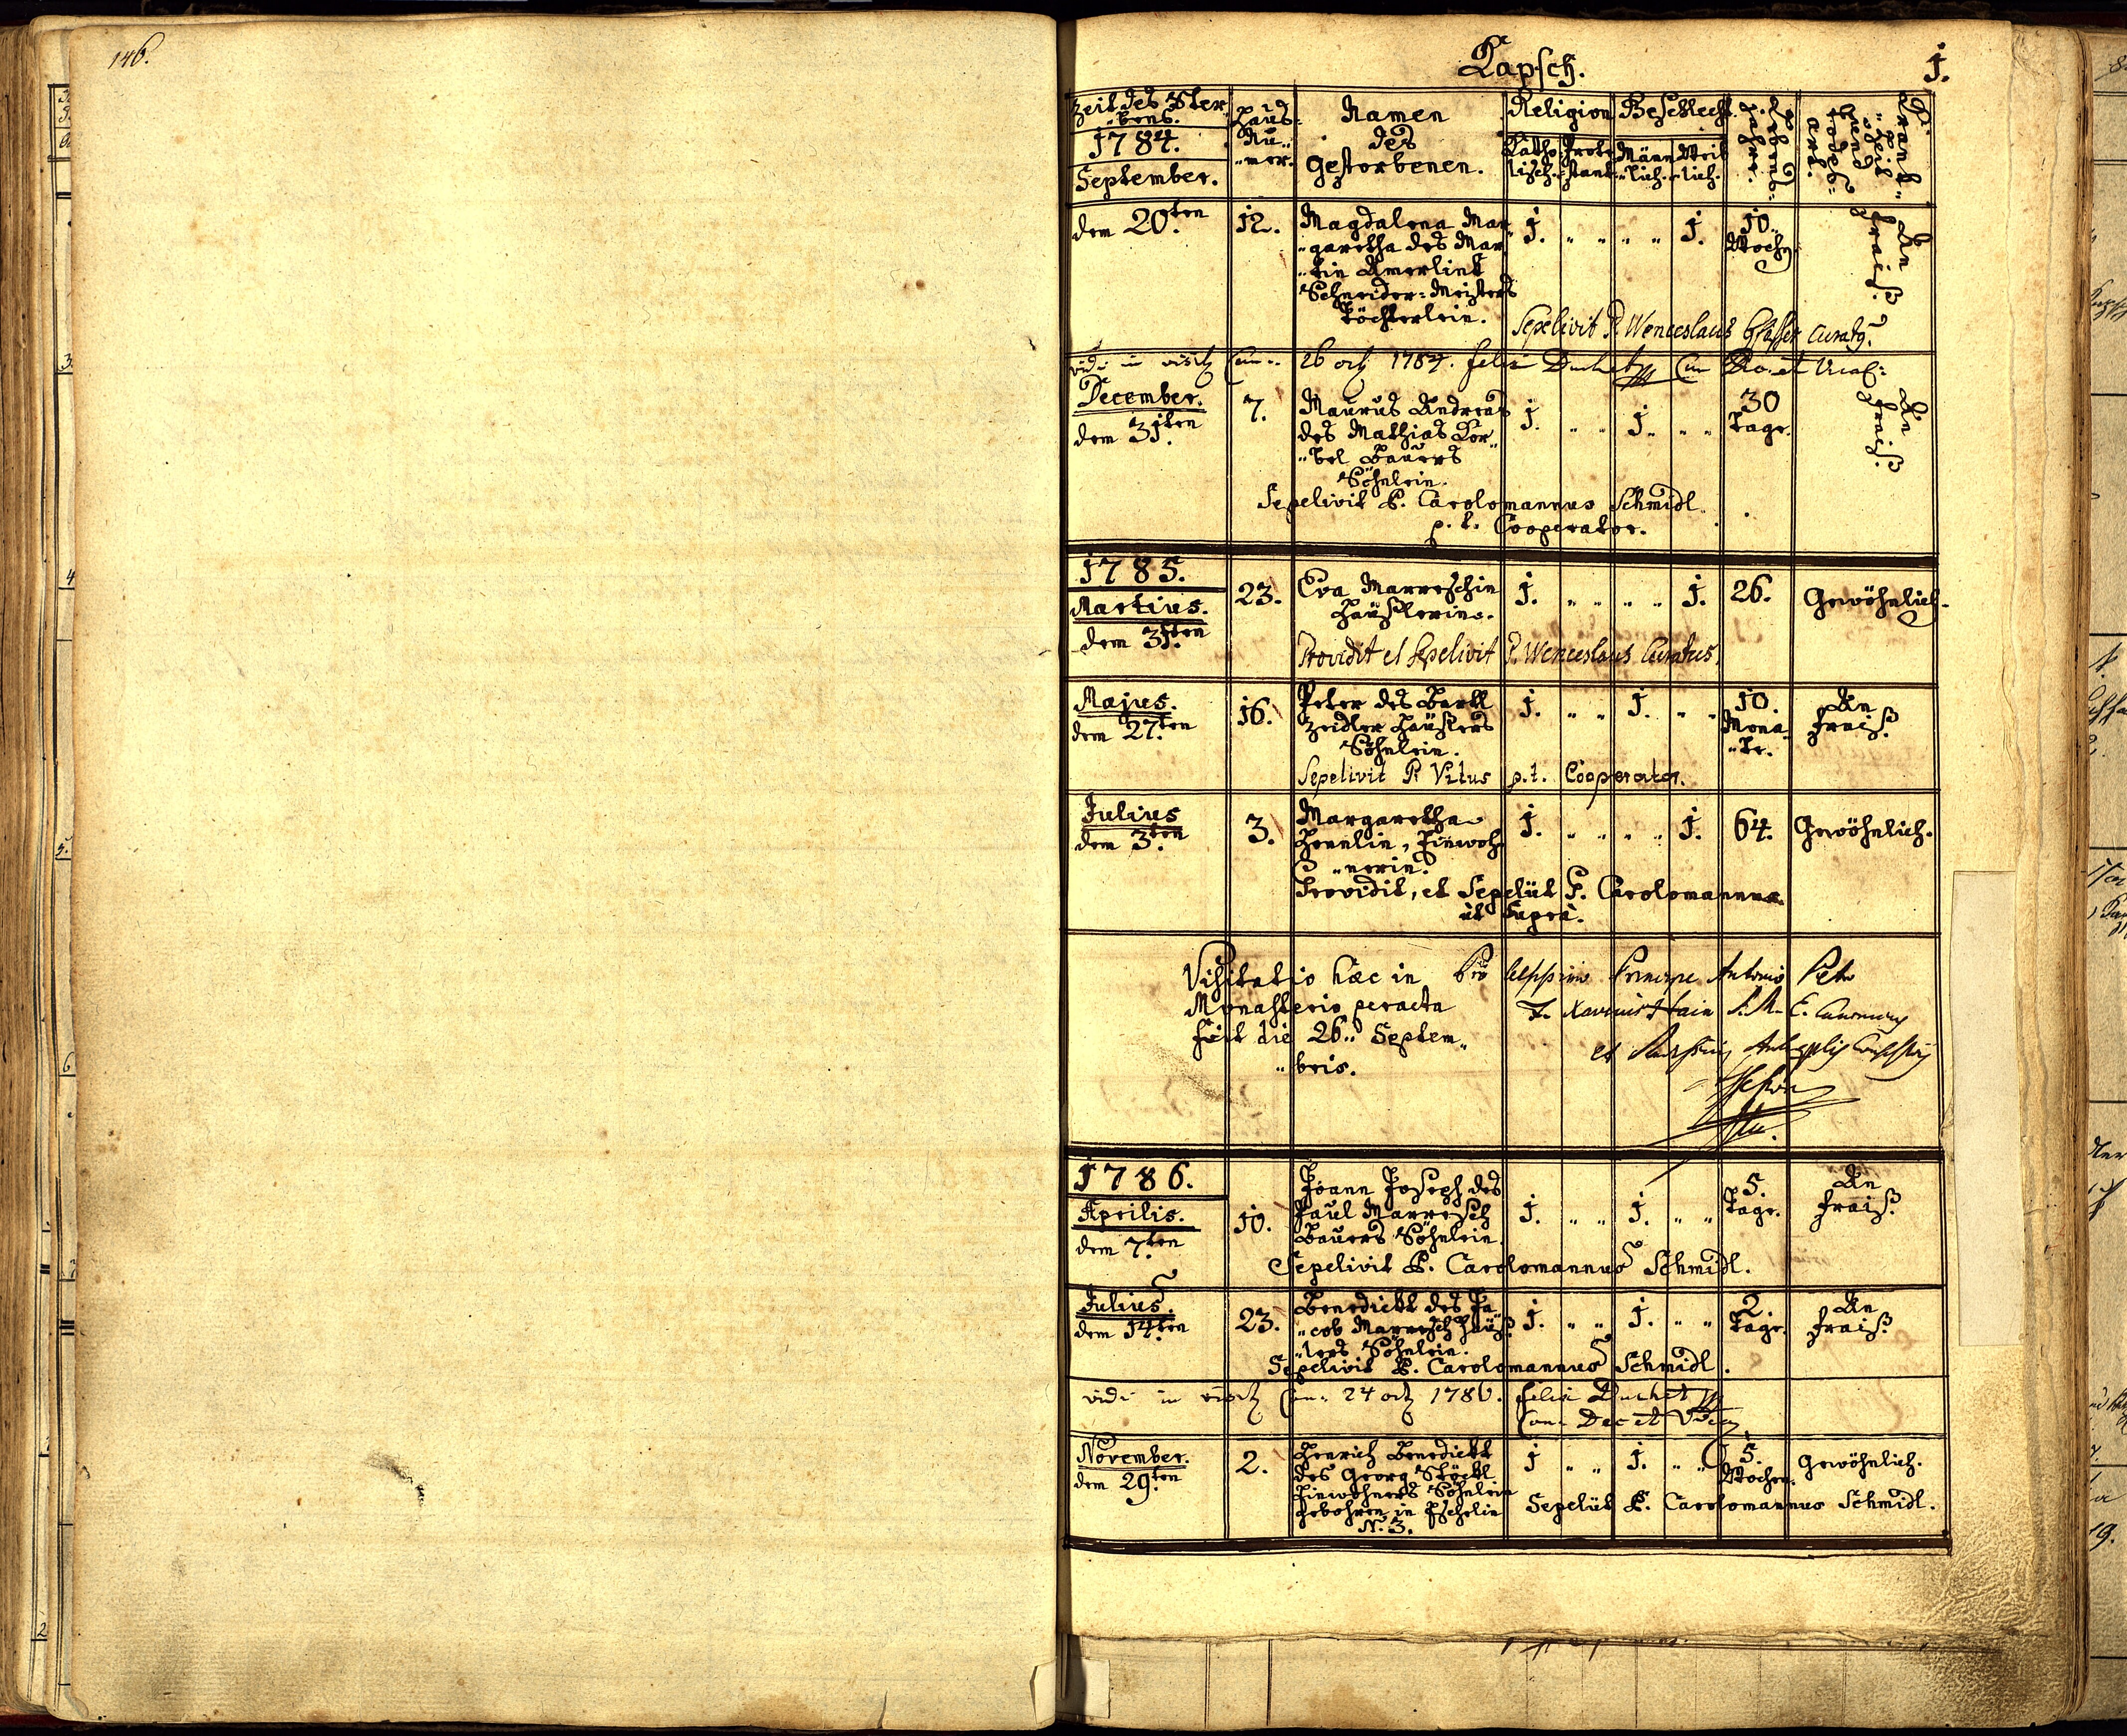 146.
Lapsch.
1.
Zeit des Ster-
"bens.
1784.
September.
Haus-
Nu"
"mer.
Namen
des
Gestorbenen.
Religion
Katho
lisch.
Prote
stant.
Geschlecht
Männ
"lich.
Weib
"lich.
Lebens"
Jahre.
Krank"
"heit
und
Todes-
art.
dem 20.ten
12.
Magdalena Mar"
"garetha des Mar"
"tin Amerlink
Schneider-Meisters
Töchterlein.
1. " " " " 1.
10.
Wochen
An
Frais.
Sepelivit P. Wenceslaus
vidi in visit Can. 26 oct 1784. Felix
December.
dem 31.ten
7.
Maurus Andreas
des Mathias Kor"
"bel Bauers
Söhnlein.
1. " " 1. " "
30
Tage.
An
Frais.
Sepelivit P. Carolomannus Schmidl.
p. t. Cooperator.
1785.
Martius.
dem 31.ten
23.
Eva Marreschin
Häuslerin.
1. " " " " 1.
26.
Gewöhnlich.
Providit et Sepelivit P. Wenceslaus Curatus.
Majus.
dem 27.ten
16.
Peter des Bartl
Zeidler Häuslers
Söhnlein.
1. " " 1. " "
10.
Mona-
"te.
An
Frais.
Sepelivit P. Vitus p.t. Cooperator.
Julius
dem 3.ten
3.
Margaretha
Hennlin, Inwoh
"nerin.
1. " " " " 1.
64.
Gewöhnlich.
Providit, et Sepeliit P. Carolomannus
ut supra.
Visitatio hæc in
Monasterio peracta
fuit die 26." Septem"
"bris.
Principe Antonio Petro
et
1786.
Aprilis.
dem 7.ten
10.
Joann Joseph des
Paul Marresch
Bauers Söhnlein.
1. " " 1. " "
5.
Tage.
An
Frais.
Sepelivit P. Carolomannus Schmidl.
Julius.
dem 14.ten
23.
Benedickt des Ja"
"cob Marresch Häus"
"lers Söhnlein.
1. " " 1. " "
2.
Tage.
An
Frais.
Sepelivit P. Carolomannus Schmidl.
vidi in visit Can. 24 oct 1786. Felix
November.
dem 29.ten
2.
Henrich Benedickt
des Georg Stöckl
Inwohners Söhnlein
gebohren in Tschelin
N. 3.
1 " " 1. " "
5.
Wochen.
Gewöhnlich.
Sepeliit P. Carolomannus Schmidl.